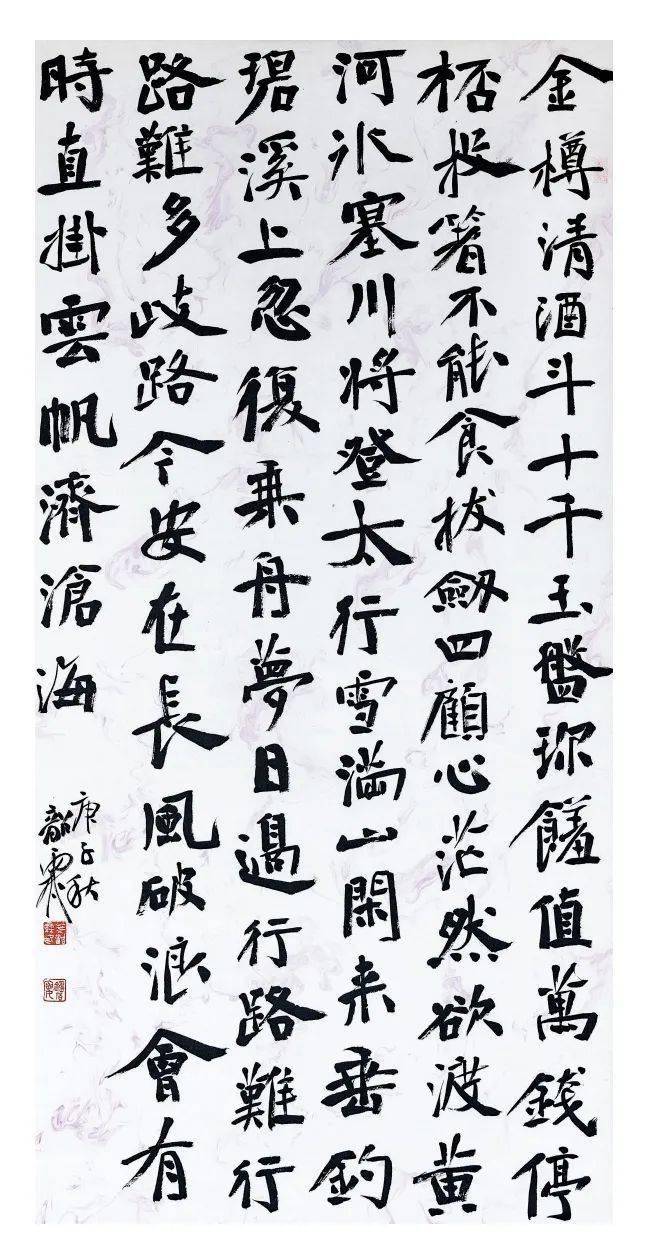 金樽清酒斗十千玉盤珎饈值萬錢停
桮投箸不能食拔劒四顧心茫然欲渡黃
河冰塞川將登太行雪滿山閑来垂釣
碧溪上忽復乘舟夢日邊行路難行
路難多歧路今安在長風破浪會有
時直掛雲帆濟滄海
庚子秋